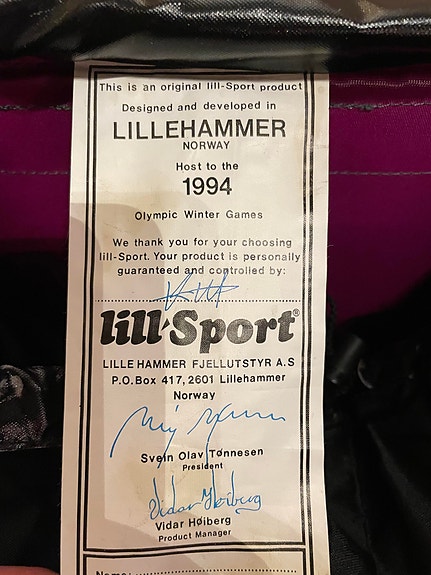 This is an original lill-Sport product
Designed and developed in
LILLEHAMMER
NORWAY
Host to the
1994
Olympic Winter Games
We thank you for your choosing
lill-Sport. Your product is personally
guaranteed and controlled by:
lill-Sport®
LILLEHAMMER FJELLUTSTYR A.S
P.O.Box 417, 2601 Lillehammer
Norway
Svein Olav Tønnesen
President
Vidar Høiberg
Vidar Høiberg
Product Manager
Name: